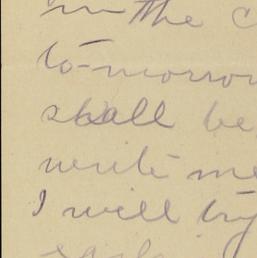 in the
to-morrow
shall be
write me
I will try